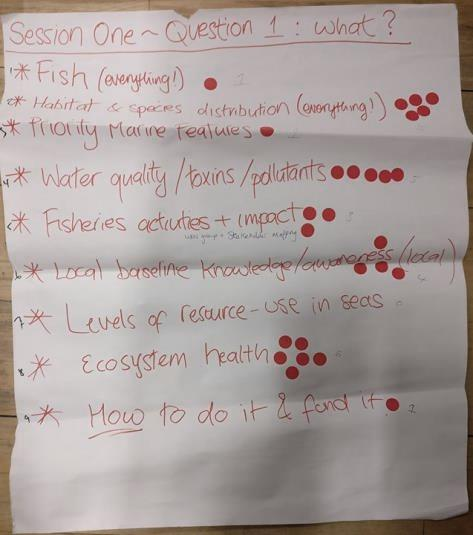 Session One ~ Question 1: what?
1 * Fish (everything!) 1
2 * Habitat & species distribution (everything!)
3 * Priority Marine Features
4 * Water quality/toxins/pollutants 5
* Fisheries activities + impact 3
+ Stakeholder mapping
6 * Local baseline knowledge/awareness (local) 4
7 * Levels of resource-use in seas 0
8 * Ecosystem health 6
9 * How to do it & fund it 1